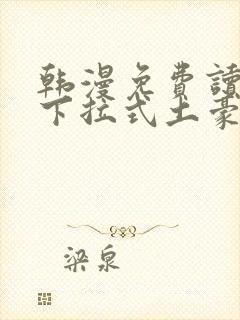 韩漫免費讀
下拉式土豪
梁泉